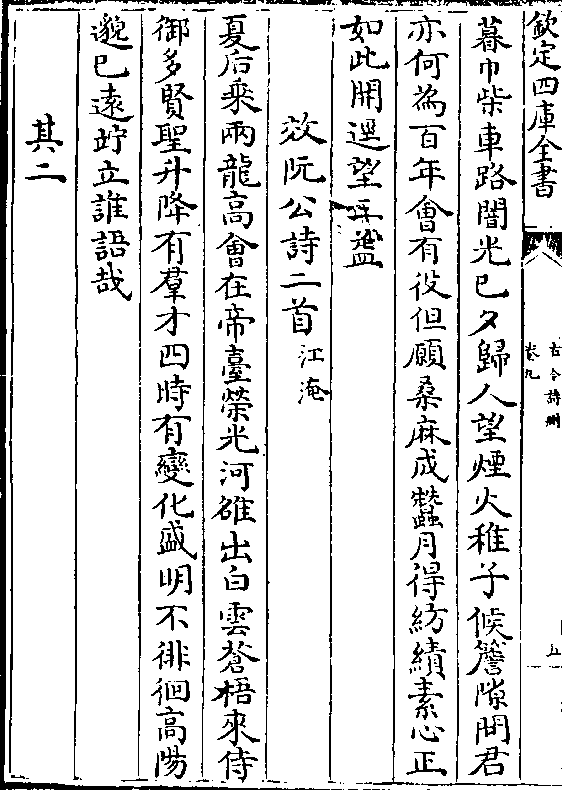 欽定四庫全書
古今詩刪
卷九
五
暮巾柴車路闇光已夕歸人望煙火稚子候簷隙問君
亦何為百年會有役但願桑麻成蠶月得紡績素心正
如此開逕望三益
效阮公詩二首 江淹
夏后乘兩龍高會在帝臺榮光河雒出白雲蒼梧來侍
御多賢聖升降有羣才四時有變化盛明不徘徊高陽
邈已遠竚立誰語哉
其二